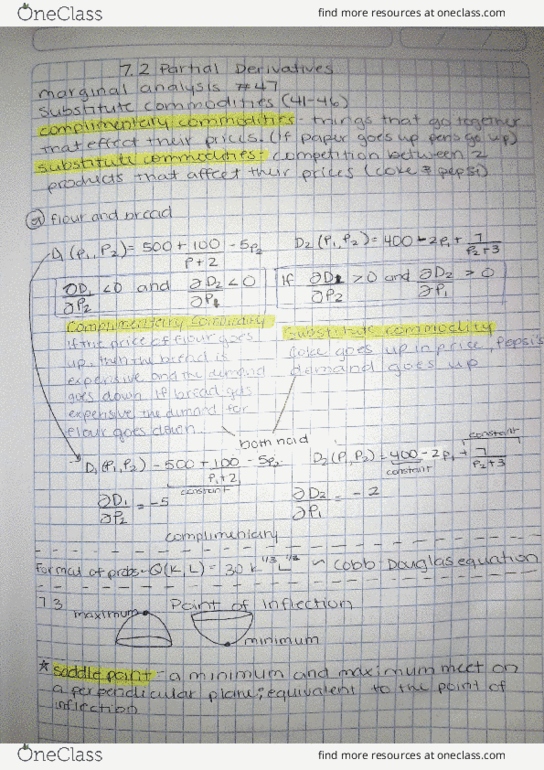 OneClass
find more resources at oneclass.com
7.2 Partial Derivatives
marginal analysis #47
substitute commodities (41-46)
complimentary commodities - things that go together
that effect their prices. (if paper goes up pens go up)
substitute commodities - competition between 2
products that affect their prices (coke & pepsi)
flour and bread
D₁(P₁,P₂) = 500 + 100/P+2 - 5p₂ D₂(P₁,P₂) = 400 - 2p₁ + 7/P₂+3
∂D₁/∂P₂ < 0 and ∂D₂/∂P₁ < 0 If ∂D₁/∂P₂ > 0 and ∂D₂/∂P₁ > 0
complimentary commodity
substitute commodity
if the price of flour goes
coke goes up in price, Pepsi's
up, then the bread is
demand goes up
expensive and the demand
goes down. If bread gets
expensive the demand for
flour goes down
both hold
constant
D₁(P₁,P₂) = 500 + 100/P₁+2 - 5p₂ D₂(P₁,P₂) = 400 - 2p₁ + 7/P₂+3
constant constant
∂D₁/∂P₂ = -5 ∂D₂/∂P₁ = -2
complimentary
Format of probs - Q(K,L) = 30 K^1/3 L^1/2 ~ Cobb Douglas equation
7.3 Point of Inflection
maximum
minimum
* saddle point - a minimum and maximum meet on
a perpendicular plane; equivalent to the point of
inflection
OneClass
find more resources at oneclass.com